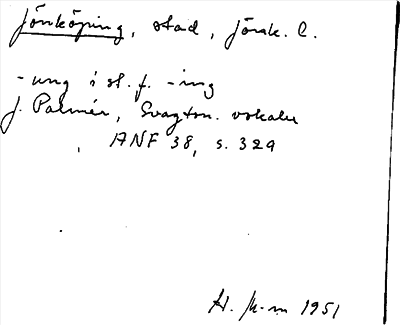 Jönköping, stad, Jönk. l.
-ung i st. f. -ing
J. Palmér, Svagton. vokaler
ANF 38, s. 329
H. K-m 1951